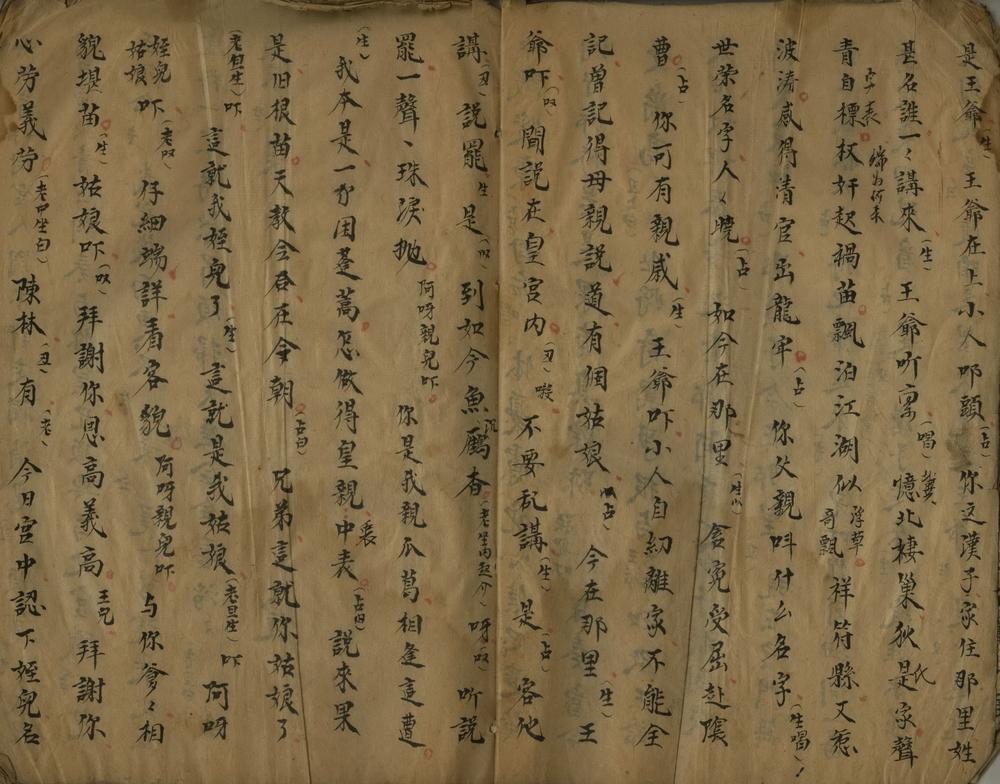 是王爺(生)王爺在上小人叩頭(占)你这漢子家住那里姓
甚名誰一々講來(生)王爺听稟(唱)憶北棲巢狄是家聲
青自標杈奸起禍苗飄泊江湖似浮草哥飄祥符縣又惹
波濤感得清官出龍牢(占)你父親呌什么名字(生唱)
世荣名字人々曉(占)如今在那里(生)含冤受屈赴
曹(占)你可有親戚(生)王爺吓小人自幼離家不能全
記曾記得母親説道有個姑娘(占)今在那里(生)王
爺吓(叹)間説在皇宫内(丑)嗷不要乱講(生)是(占)容他
講(丑)説罷生是(叹)到如今魚沉雁杳(老坐内起介)呀(叹)听説
罷一聲、珠淚抛阿呀親兒吓你是我親瓜葛相逢這遭
(生)我本是一介困蓬蒿怎做得皇親中表(占白)説來果
是旧根苗天教今番在今朝(占白)兄弟這就你姑娘了
(老旦生)吓這就我姪兒了(生)這就是我姑娘(老旦生)吓阿呀
姪兒姑娘吓(老叹)仔細端詳看容貌阿呀親兒吓与你爹々相
貌堪苗(生)姑娘吓(叹)拜謝你恩高義高王兄拜謝你
心劳義劳(老中坐白)陳林(丑)有(老)今日宫中認下姪兒名